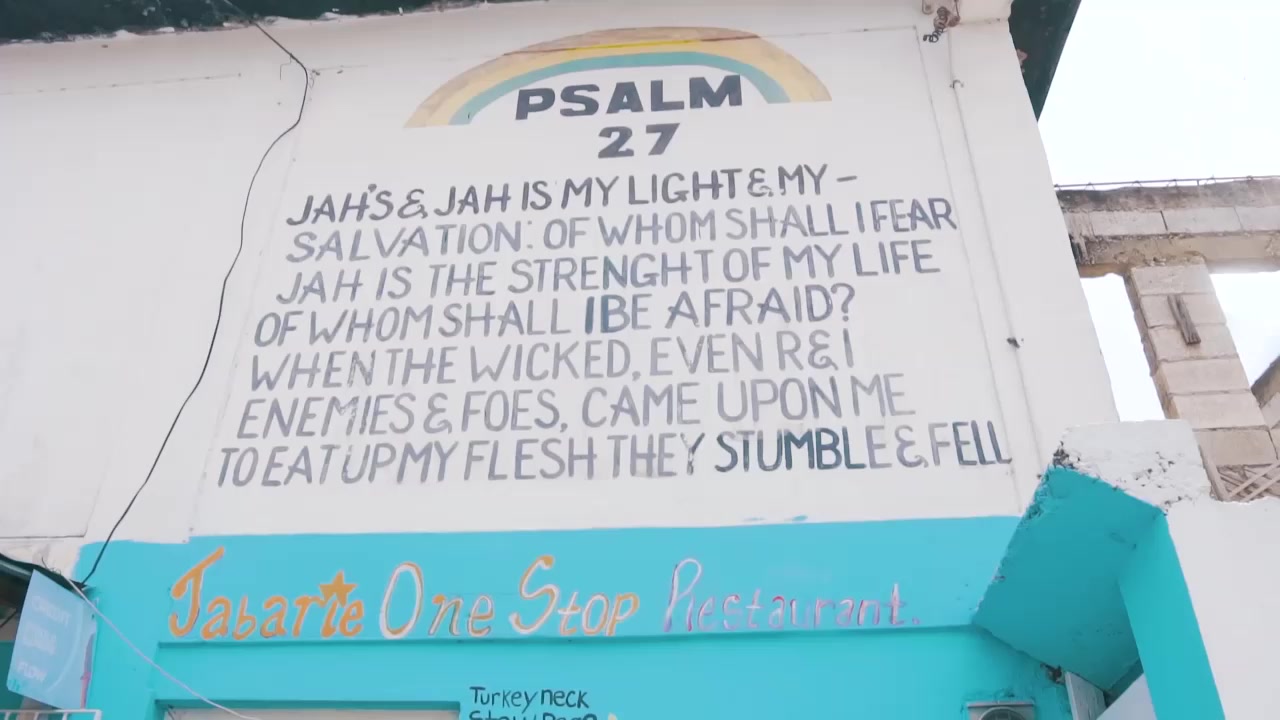 PSALM
27
JAH'S & JAH IS MY LIGHT & MY –
SALVATION: OF WHOM SHALL I FEAR
JAH IS THE STRENGHT OF MY LIFE
OF WHOM SHALL I BE AFRAID?
WHEN THE WICKED, EVEN R & I
ENEMIES & FOES, CAME UPON ME
TO EAT UP MY FLESH THEY STUMBLE & FELL
Jabarie One Stop Restaurant.
Turkey neck
FLOW